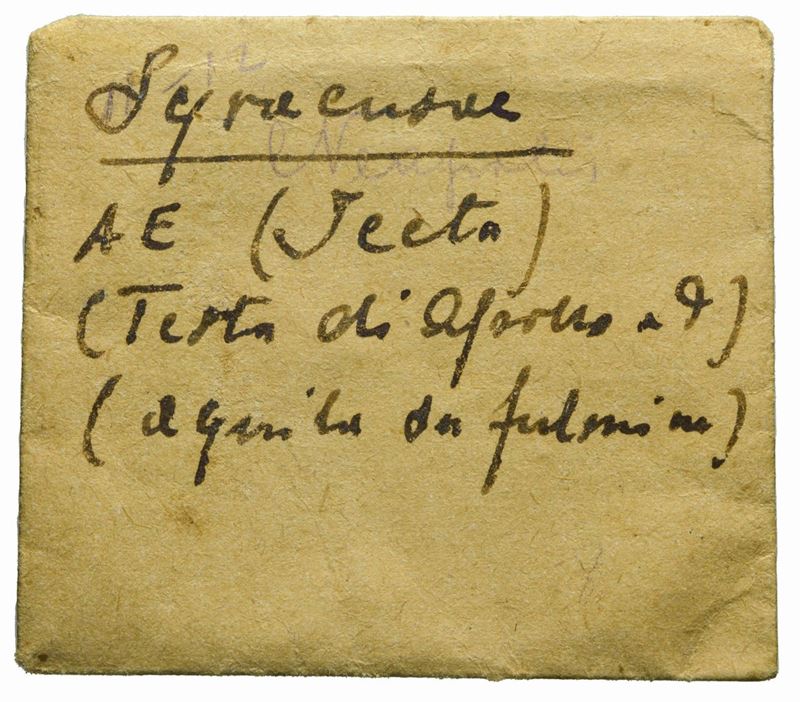 Syracusae
Neapolis
AE (Jceta)
(Testa di Apollo a d)
(aquila su fulmine)